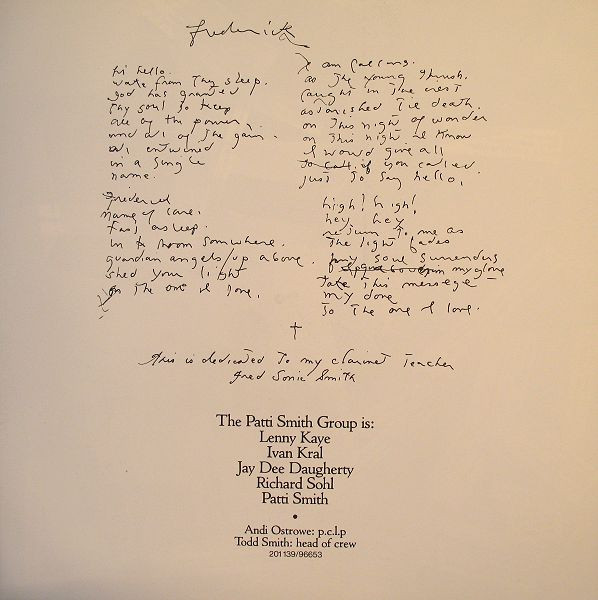 frederick
hi hello.
wake from thy sleep.
god has granted
thy soul to keep
all of the power
and all of the gain.
all entwined
in a single
name.
frederick
name of love.
fast asleep.
in a room somwhere.
guardian angels/up above.
shed your light
on the one I love.
I am calling.
as the young thrush.
caught in the nest
astonished til death.
on this night of wonder
on this night I know
I would give all
to call, if you called
just to say hello.
high! high!
hey hey
return to me as
the light fades
my soul surrenders
my glove
take this message
my dove
to the one I love.
†
this is dedicated to my clarinet teacher
fred sonic smith
The Patti Smith Group is:
Lenny Kaye
Ivan Kral
Jay Dee Daugherty
Richard Sohl
Patti Smith
•
Andi Ostrowe: p.c.l.p
Todd Smith: head of crew
201 139/96653